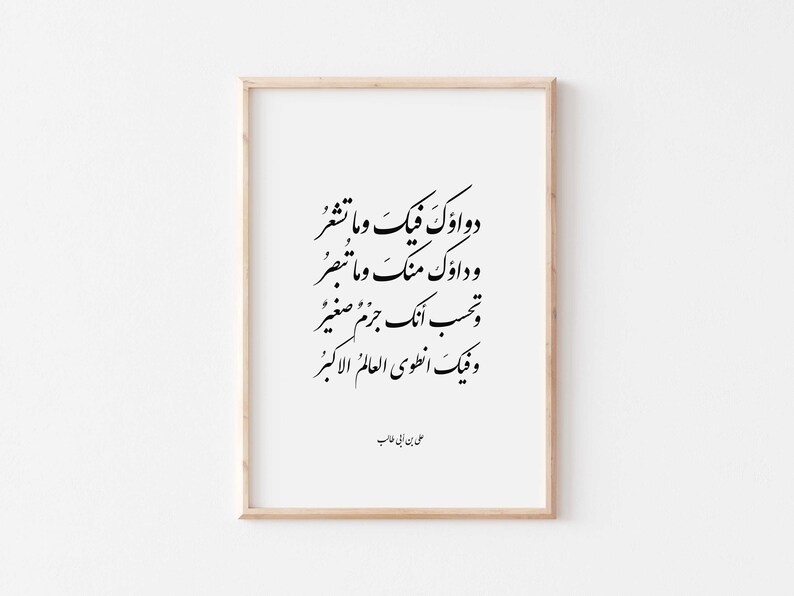 دواؤكَ فيكَ وما تشعرُ
وداؤكَ منكَ وما تُبصرُ
وتحسب أنك جرْمٌ صغيرٌ
وفيكَ انطوى العالمُ الاكبرُ
علي بن أبي طالب